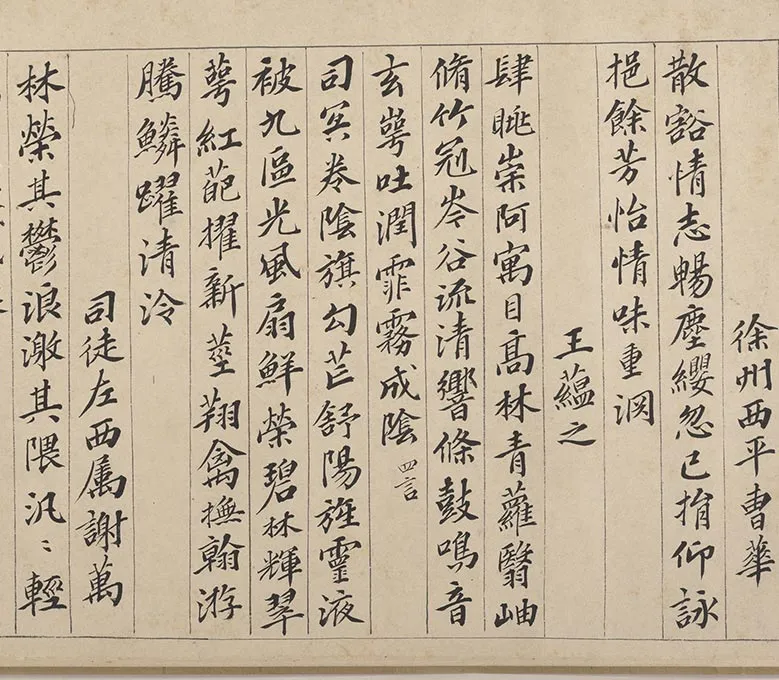 徐州西平曹華
散豁情志暢塵纓忽已捐仰詠
挹餘芳怡情味重淵
王蘊之
肆眺崇阿寓目髙林青蘿翳岫
脩竹冠岑谷流清響條鼓鳴音
玄崿吐潤霏霧成陰 四言
司冥卷陰旗勾芒舒陽旌靈液
被九區光風扇鮮榮碧林輝翠
萼紅葩擢新莖翔禽撫翰游
騰鱗躍清泠
司徒左西属謝萬
林榮其鬱浪激其隈汎〻輕